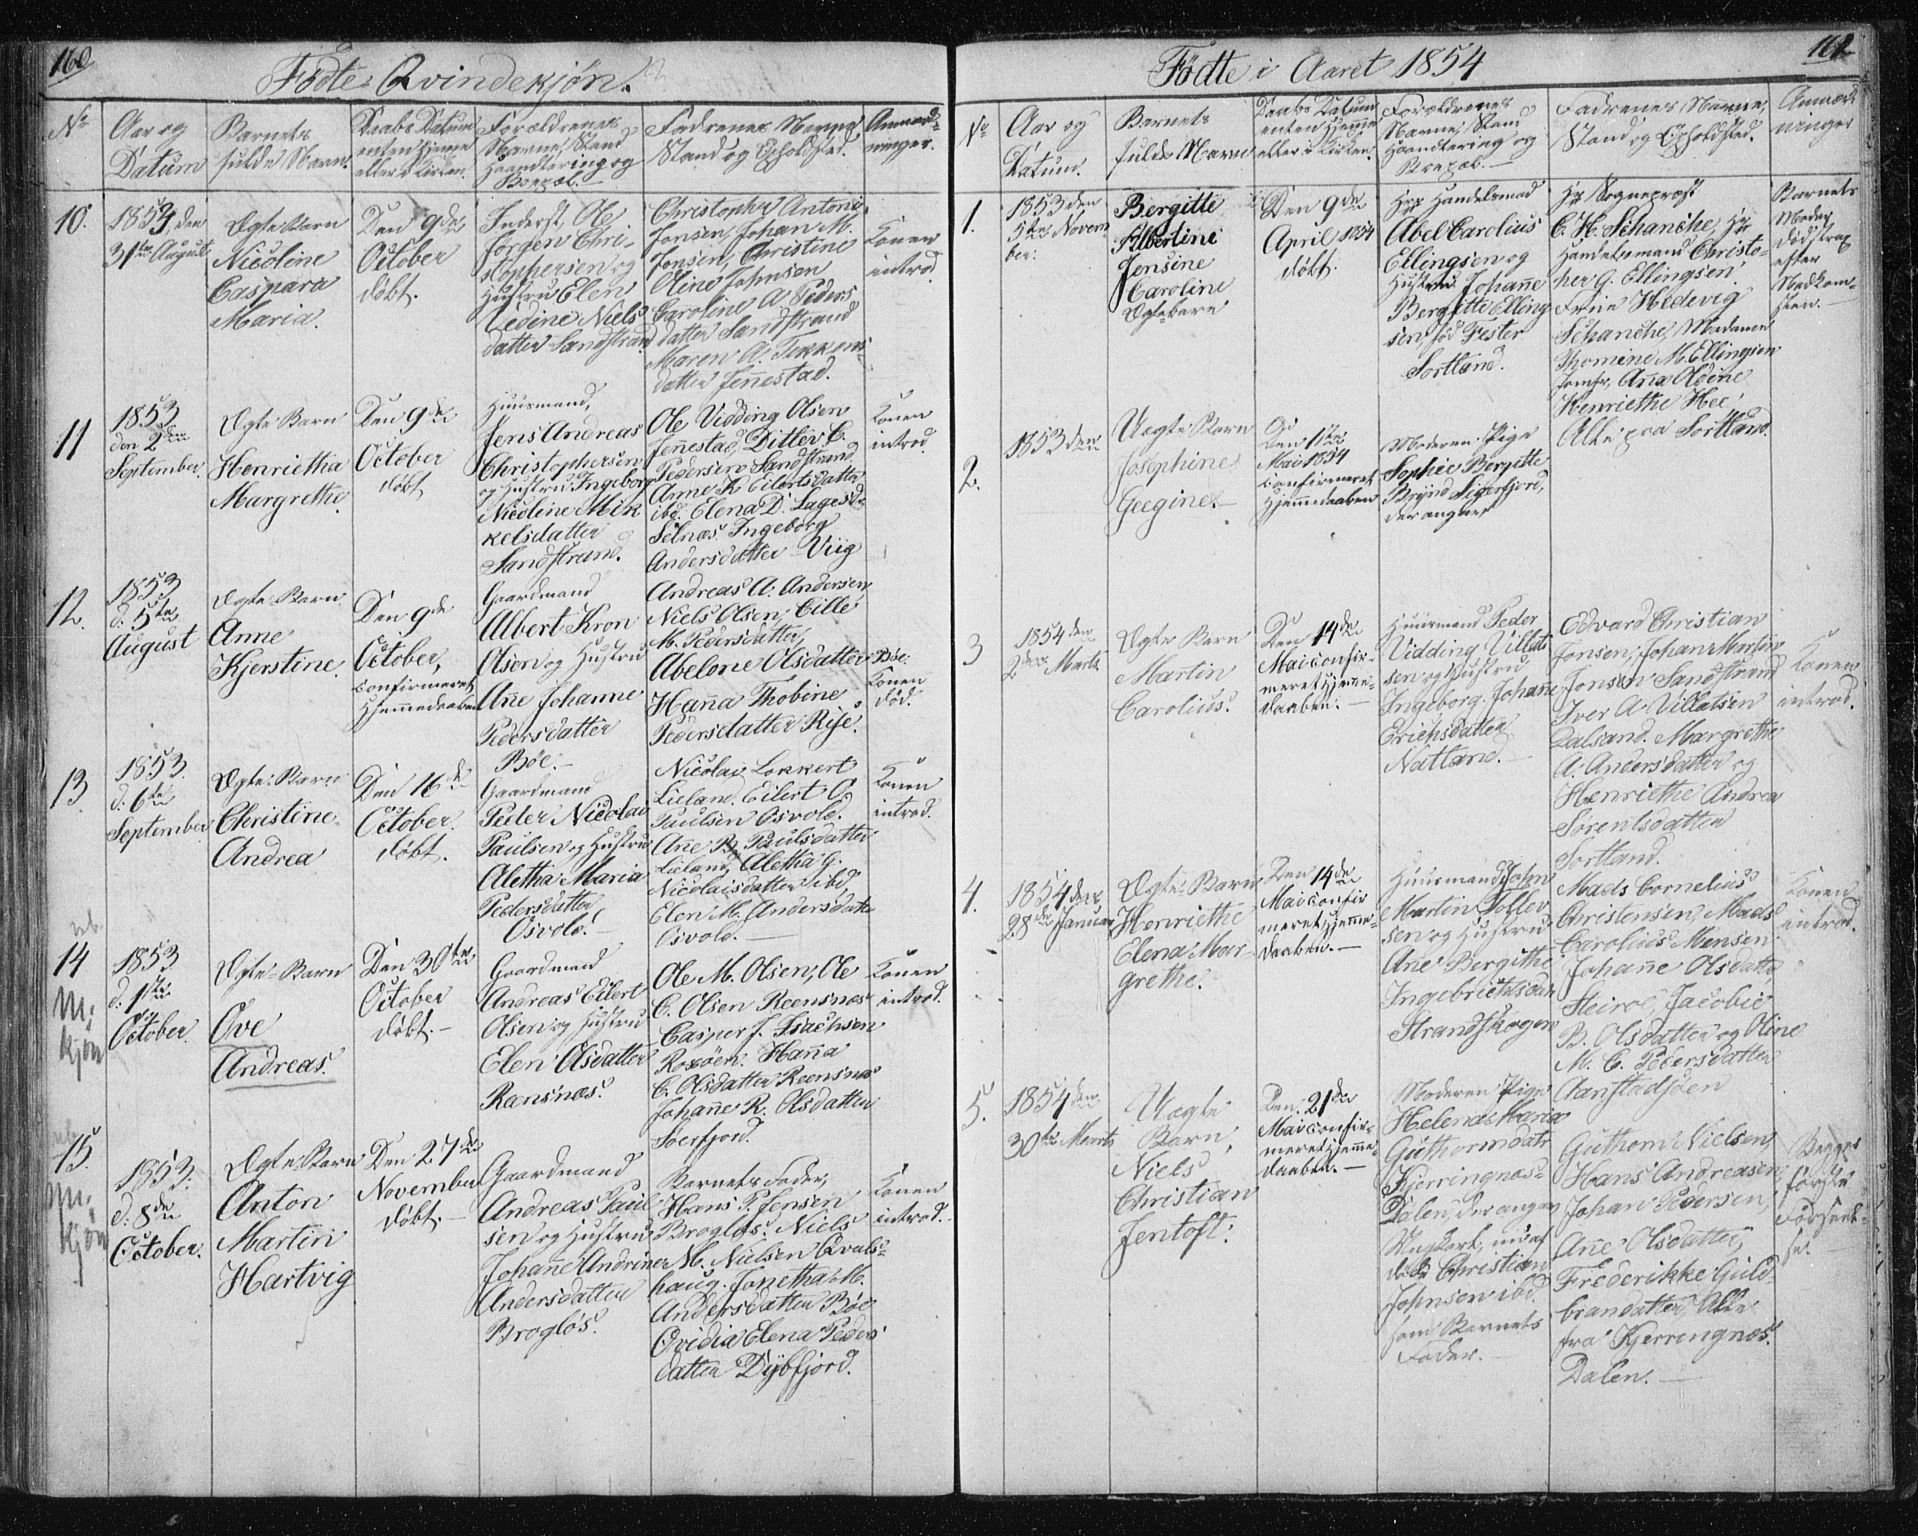 160
Fødte Qvindekjøn.
No
Aar og
Datum
Barnets
fulde Navn.
Daabs Datum
enten hjemme
eller i Kirken.
Forældrenes
Navne, Stand
Haandtering og
Boepæl.
Faddrenes Navne,
Stand og Opholdsted.
Anmærk-
ninger.
10.
1853 den
31te August
Ægte Barn
Nicoline
Caspara
Maria.
Den 9de
October
døbt.
Inderst, Ole
Jørgen Chri-
stophersen og
Hustru Elen
Ledine Niels
datter Sandstrand
Christopher Antoni
Jonsen, Johan M.
Jonsen, Christine
Oline Johnsen
Caroline A. Peders
datter Sandstrand
Maren A. Tekkens
datter Jennestad.
Konen
introd.
11
1853
den 2den
September.
Ægte Barn
Henrietha
Margrethe.
Den 9de
October
døbt
Huusmand,
Jens Andreas
Christophersen
og Hustru Ingeborg
Nicoline Mik
kelsdatter
Sandstrand.
Ole Vidding Olsen
Jennestad, Ditlev C.
Pedersen Sandstrand
Anne K. Eilertsdatter
ibd. Elena D. Lagesd.
Selnæs Ingeborg
Andersdatter Viig
Konen
introd.
12.
1853
d. 5te
August
Ægte Barn
Anne
Kjerstine.
Den 9de
October,
confirmeret
Hjemmedaaben
Gaardmand
Albert Kron
Olsen og Hustru
Ane Johanne
Pedersdatter
Bøe.
Andreas A. Andersen
Niels Olsen, Cille
M. Pedersdatter,
Abelone Olsdatter Bøe.
Hanna Thobine
Pedersdatter Rise.
Konen
død.
13
1853.
d. 6te
September
Ægte Barn
Christine
Andrea
Den 16de
October.
døbt.
Gaardmand
Peder Nicolai
Paulsen og Hustru
Aletha Maria
Pedersdatter
Osvold.
Nicolai Lokkert
Lieland. Eilert O.
Paulsen Osvold.
Ane B. Paulsdatter
Lieland, Aletha G.
Nicolaisdatter ibd.
Elen M. Andersdatter
Osvold.
Konen
introd.
nb.
14
M.
kjøn
1853
d. 1ste
October.
Ægte Barn
Ove
Andreas.
Den 30te
October
døbt.
Gaardmand
Andreas Eilert
Olsen og Hustru
Elen Olsdatter
Rænsnæs.
Ole M. Olsen, Ole
C. Olsen Reensnæs
Casper J. Isachsen
Roksøen. Hanna
C. Olsdatter Reensnæs
Johanne R. Olsdatter
Soerfjord.
Konen
introd.
nb
15.
M.
kjøn
1853.
d. 8de
October.
Ægte Barn
Anton
Martin
Hartvig
Den 27de
November
døbt.
Gaardmand
Andreas Paul
sen og Hustru
Johanne Andrine
Andersdatter
Brogløs.
Barnets Fader,
Hans P. Jensen
Brogløs. Niels
M. Nielsen Qvals-
haug. Jonetha M.
Andersdatter Bøe
Ovidia Elena Peders
datter Dybfjord.
Konen
introd.
Fødte i Aaret 1854
No
Aar og
Datum.
Barnets
fulde Navn
Daabs Datum
enten hjemme
eller i Kirken.
Forældrenes
Navne, Stand
Haandtering og
Boepæl.
Faddrenes Navne,
Stand og Opholdsted.
Anmærk
ninger
1.
1853 den
5te Novem
ber.
Bergitte
Albertine
Jensine
Caroline
Ægtebarn
Den 9de
April 1854
døbt.
Hrr Handelsmad
Abel Carolius
Ellingsen og
Hustru Johanne
Bergitte Elling
sen fød Fester
Sortland.
Hr Sognepræst
C. H. Schanche, Hr
Handelsmand Christo-
pher G. Ellingsen.
Frue Hedevig
Schanche, Madame
Thomine M. Ellingsen
Jomfr. Ana Oldine
Henriethe Hee,
Alle paa Sortland.
Barnets
Moder
død strax
efter
Nedkom-
sten.
2.
1853 den
Uægte Barn
Josephine
Gregine.
Den 11te
Mai 1854
confirmeret
Hjemmedaaben
Moderen Pige
Sophie Bergitte
Brynd Sigerfjord,
der angiver
3
1854 den
2den Marts
Ægte Barn
Martin
Carolius.
Den 14de
Mai confir-
meret Hjemme-
daaben.
Huusmand Peder
Vidding Villats
sen og Hustru
Ingeborg Johanne
Erichsdatter
Natland.
Edvard Christian
Jonsen, Johan Martin
Jonsen Sandstrand
Iver A. Villatsen
Dalsand. Margrethe
A. Andersdatter og
Henriethe Andrea
Sørentsdatter
Sortland.
Konen
introd.
4.
1854 den
28de Januar
Ægte Barn
Henriethe
Elena Mar-
grethe.
Den 14de
Mai confir
meret Hjemme-
daaben.
Huusmand John
Martin Toller
sen og Hustru
Ane Bergithe
Ingebrichtsdatr
Strandskogen
Mads Cornelius
Christensen, Mads
Carolius Mensen
Johanne Olsdatter
Steiroe, Jacobie
B. Olsdatter og Oline
M. C. Pedersdatter
Aanstadsøen
Konen
introd.
5.
1854 den
30te Marts
Uægte
Barn,
Niels
Christian
Jentoft.
Den 21de
Mai confir-
meret Hjemme-
daaben.
Moderen Pige
Helena Maria
Guthormdatr
Kjerringnæs-
Dalen, der angav
Ungkarl, nu af
død Christian
Johnsen ibd.
som Barnets
Fader.
Guthom Nielsen,
Hans Andreasen
Johan Pedersen,
Ane Olsdatter,
Frederikke Guld-
brandatter, Alle
fra Kjerringnæs-
Dalen.
Begges
første
Forseel-
se.